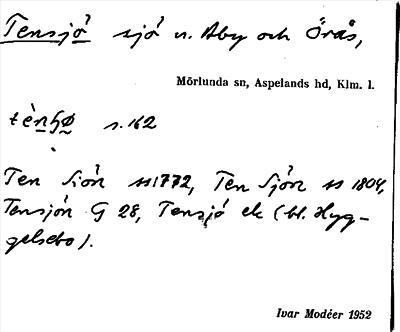 Tensjö sjö n. Åby och Örås,
Mörlunda sn, Aspelands hd, Klm. l.
s. 162
Ten Siön ss 1772, Ten Sjön ss 1804,
Tensjön G 28, Tensjö ek (bl. Hyg-
gelsebo).
Ivar Modéer 1952